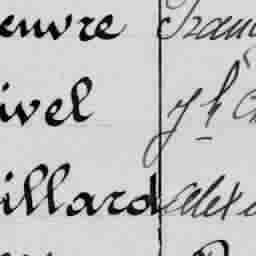 euvre Franç
ivel Jh C
illard Alex